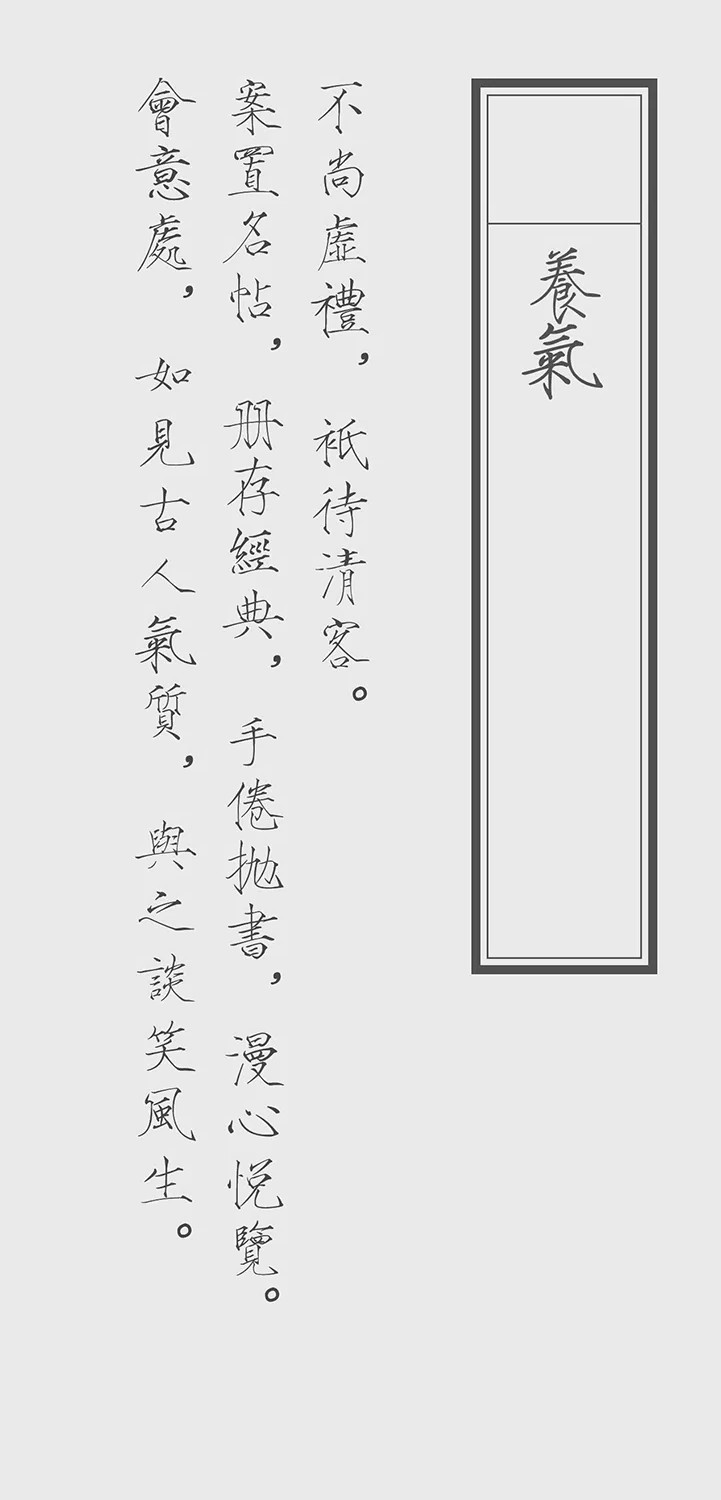 養氣
不尚虛禮，衹待清客。
案置名帖，册存經典，手倦抛書，漫心悦覽。
會意處，如見古人氣質，與之談笑風生。